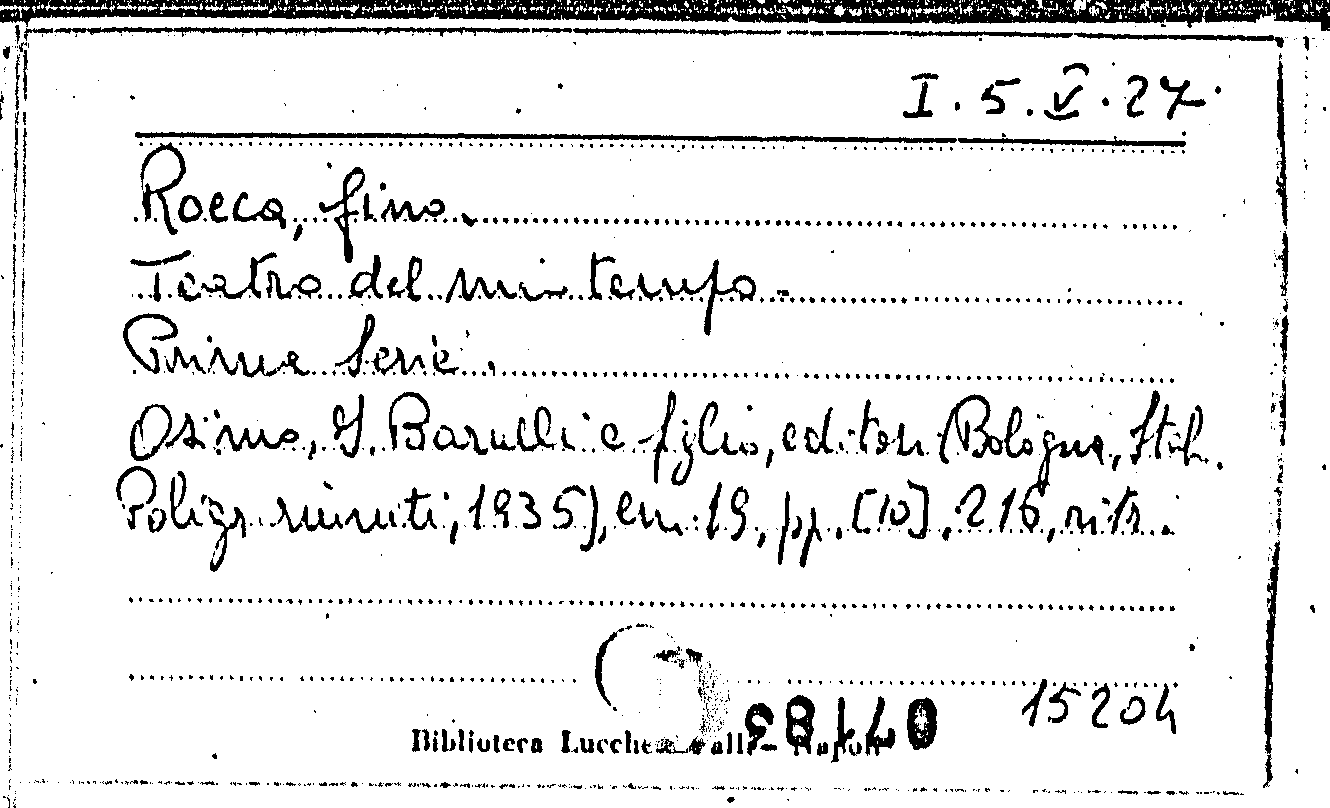 I. 5. V. 27.
Rocca, Gino.
Teatro del mio tempo.
Prima Serie.
Osimo, I. Barulli e figlio, editori (Bologna, Stab.
Poligr. riuniti, 1935), cm. 19, pp. [10]. 216, ritr.
15204
Biblioteca Lucchesi Palli - Napoli